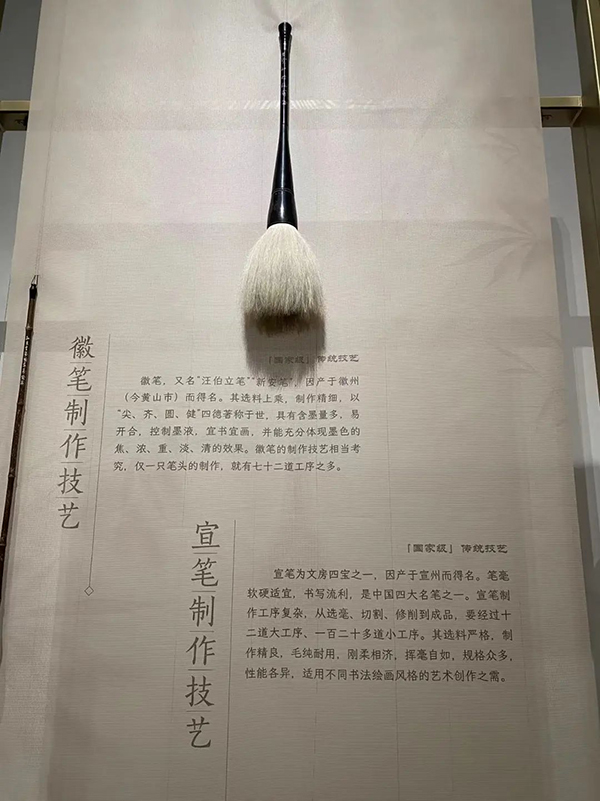 徽笔制作技艺
「国家级」传统技艺
徽笔，又名“汪伯立笔”“新安笔”，因产于徽州
（今黄山市）而得名。其选料上乘，制作精细，以
“尖、齐、圆、健”四德著称于世，具有含墨量多，易
开合，控制墨液，宜书宜画，并能充分体现墨色的
焦、浓、重、淡、清的效果。徽笔的制作技艺相当考
究，仅一只笔头的制作，就有七十二道工序之多。
宣笔制作技艺
「国家级」传统技艺
宣笔为文房四宝之一，因产于宣州而得名。笔毫
软硬适宜，书写流利，是中国四大名笔之一。宣笔制
作工序复杂，从选毫、切割、修削到成品，要经过十
二道大工序、一百二十多道小工序。其选料严格，制
作精良，毛纯耐用，刚柔相济，挥毫自如，规格众多，
性能各异，适用不同书法绘画风格的艺术创作之需。